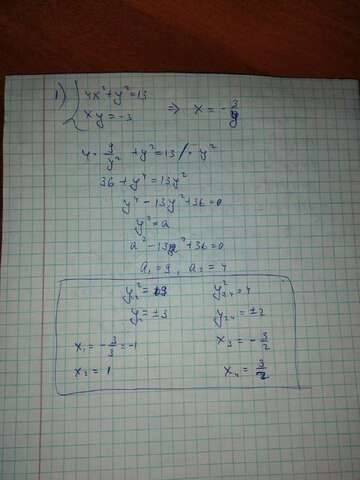 1) { 4x²+y²=13
xy=-3 ⇒ x = -3/y
4·9/y² + y²=13 /·y²
36+y⁴=13y²
y⁴-13y²+36=0
y²=a
a²-13a+36=0
a₁=9, a₂=4
y²₁₂=9 y²₃,₄=4
y₁₂=±3 y₃,₄=±2
x₁=-3/3=-1 x₃=-3/2
x₂=1 x₄=3/2